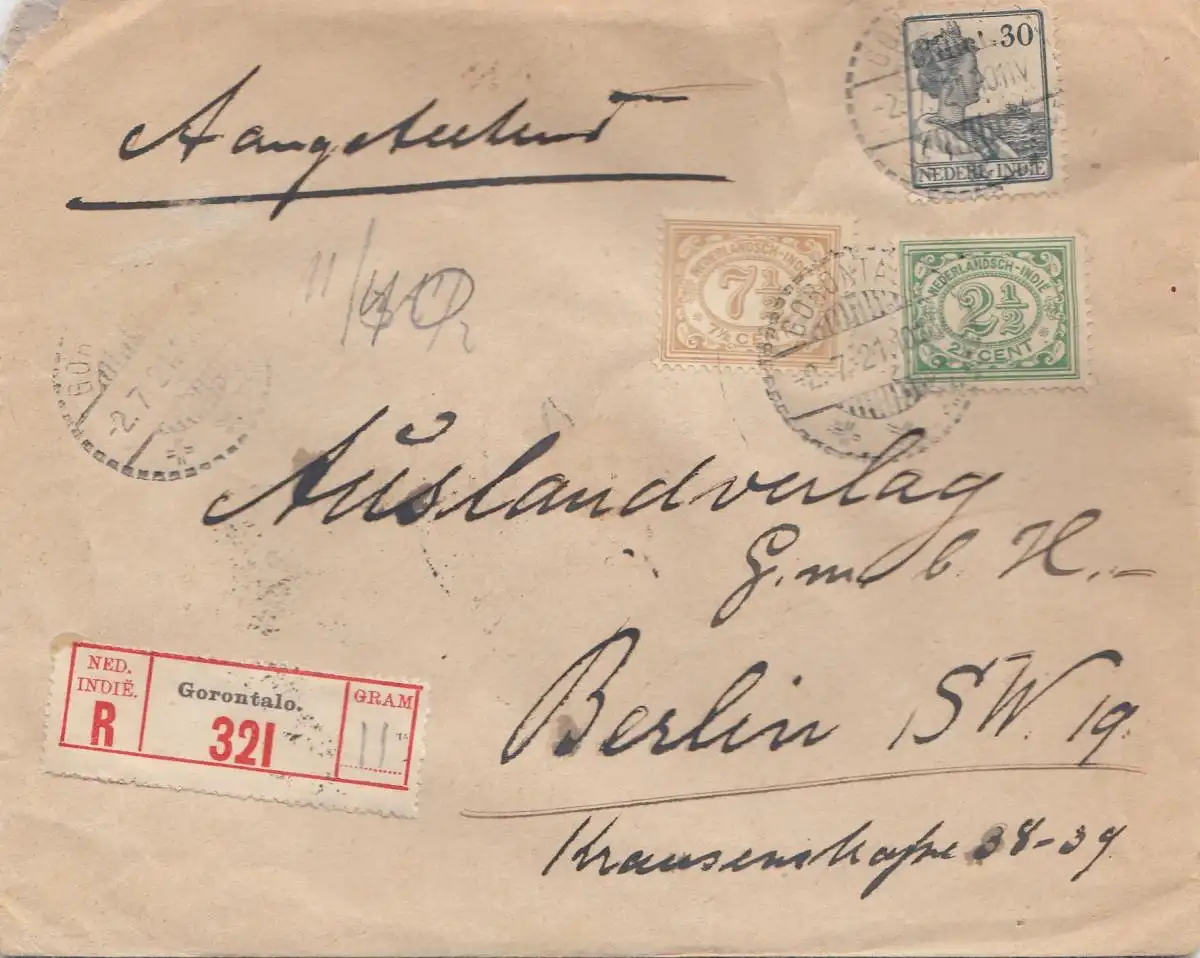 Aangeteekend
30
NEDERL-INDIË
NEDERLANDSCH-INDIË
7½
7½ CENT
NEDERLANDSCH-INDIË
2½
2½ CENT
GORONTA
-2.7.21.10
-2.7.21
11/40
Auslandverlag
G.m.b.H.-
Berlin SW. 19.
Krausenstraße 38-39.
NED. INDIË.
R
Gorontalo.
321
GRAM
11